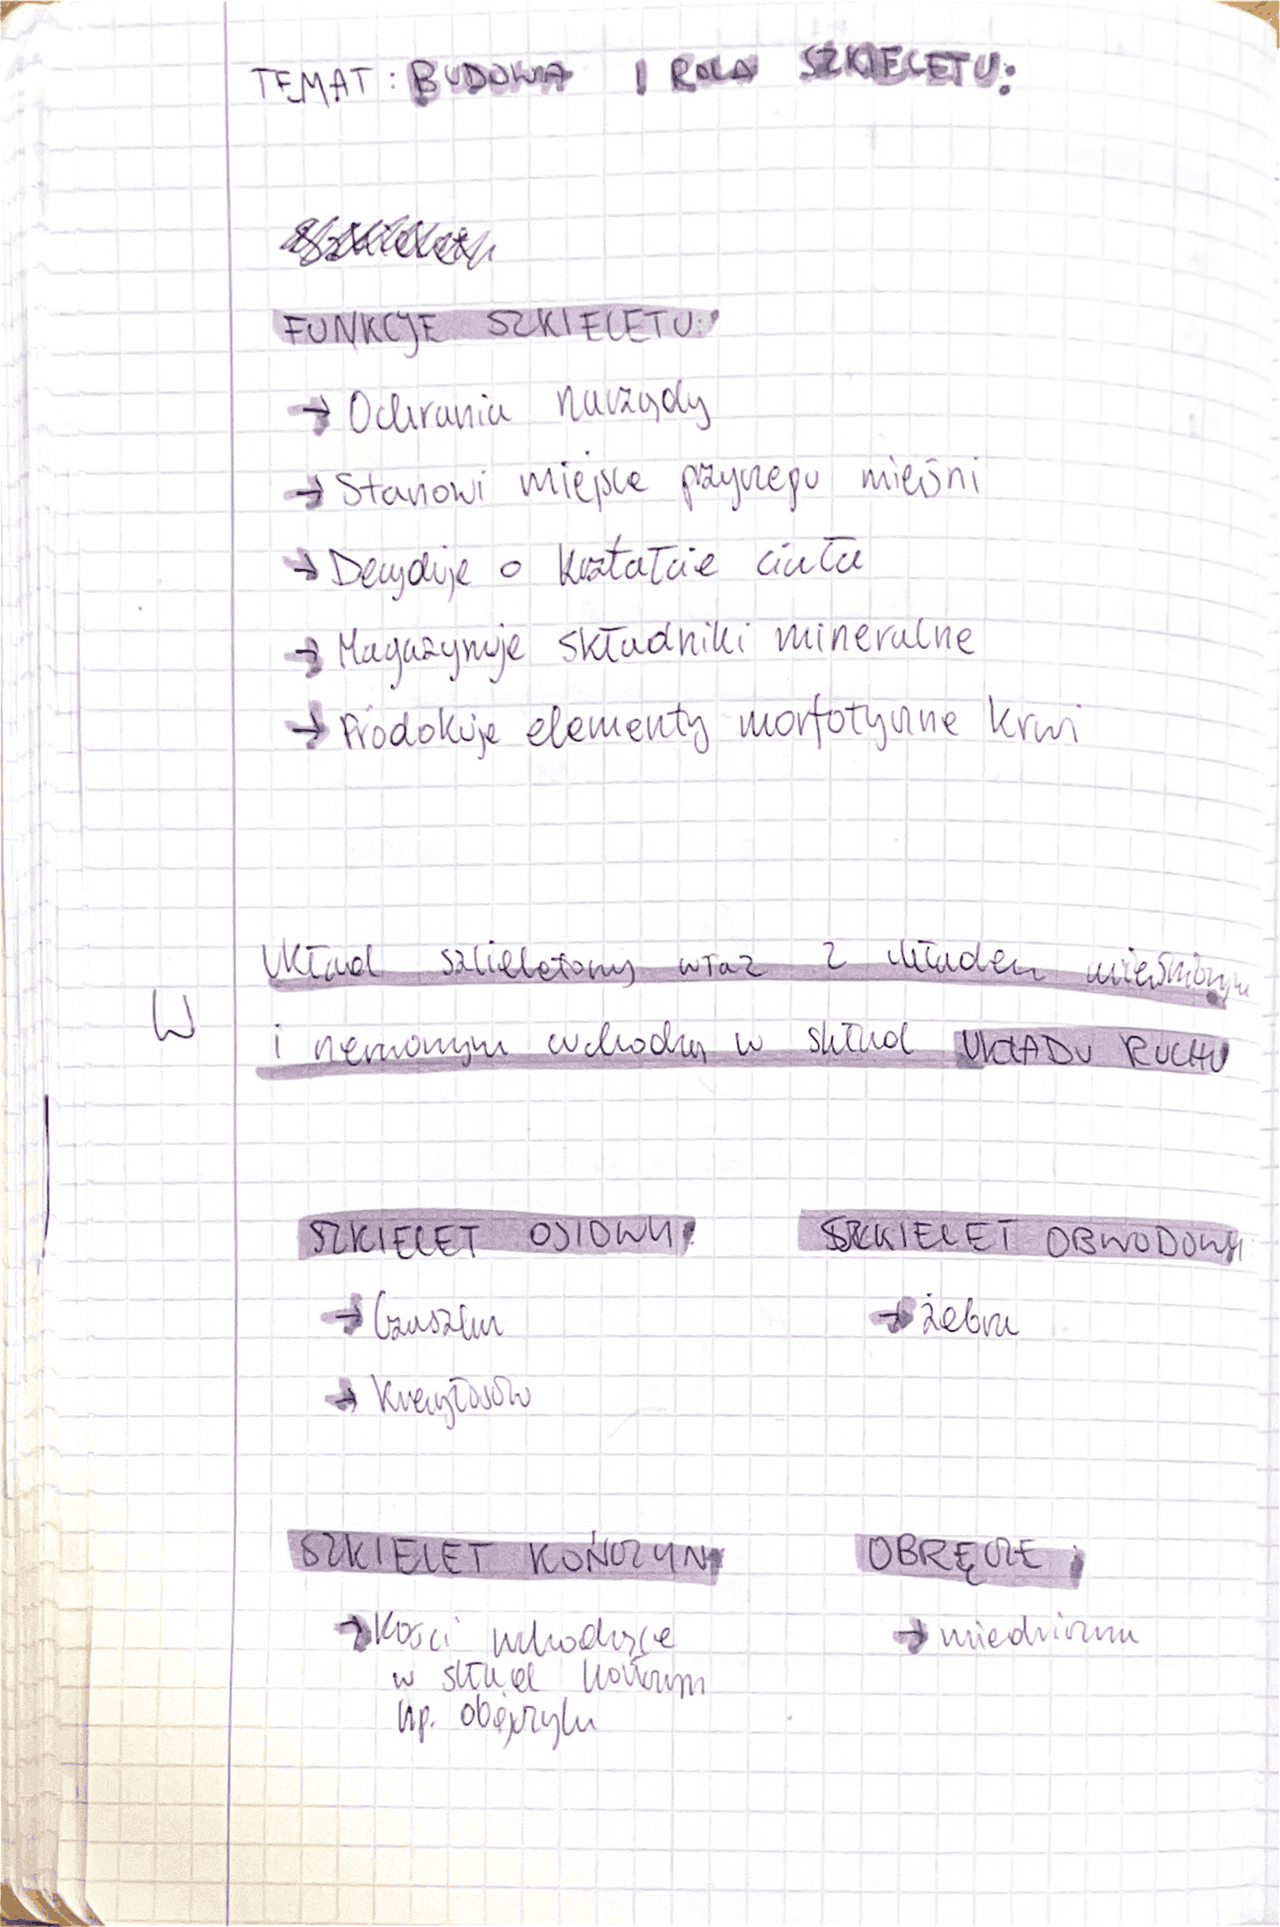 TEMAT: BUDOWA I ROLA SZKIELETU:
FUNKCJE SZKIELETU:
→ Ochrania narządy
→ Stanowi miejsce przyczepu mięśni
→ Decyduje o kształcie ciała
→ Magazynuje składniki mineralne
→ Prodokuje elementy morfotyczne krwi
Układ szkieletowy wraz z układem mięśniowym
W
i nerwowym wchodzą w skład UKŁADU RUCHU
SZKIELET OSIOWY: SZKIELET OBWODOWY
→ Czaszka → żebra
→ Kręgosłów
SZKIELET KOŃCZYN: OBRĘCZE:
→ Kości wchodzące → miedniczna
w skład kończyn
np. obojczyk